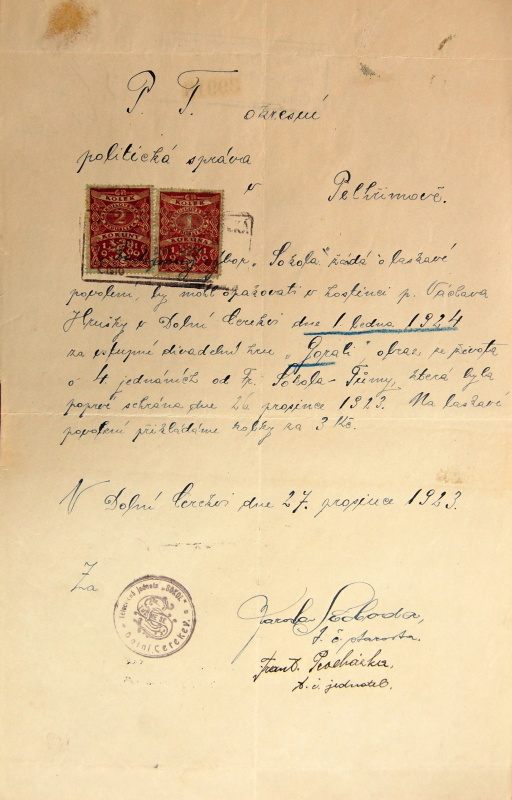 P. T. okresní
politická správa
v Pelhřimově.
ČR ČR
KOLEK KOLEK
2 1
KORUNY KORUNA
odbor „Sokola" žádá o laskavé
povolení, by mohl opakovati v hostinci p. Václava
Hrušky v Dolní Cerekvi dne 1 ledna 1924
za vstupné divadelní hru „Gorali", obraz ze života
o 4 jednáních od Fr. Sokola-Tůmy, která byla
poprvé sehrána dne 26 prosince 1923. Na laskavé
povolení přikládáme kolky za 3 Kč.
V Dolní Cerekvi dne 27. prosince 1923.
Za
jednota „SOKOL"
Dolní Cerekev.
Svoboda,
t. č. starosta.
Frant. Procházka,
t. č. jednatel.